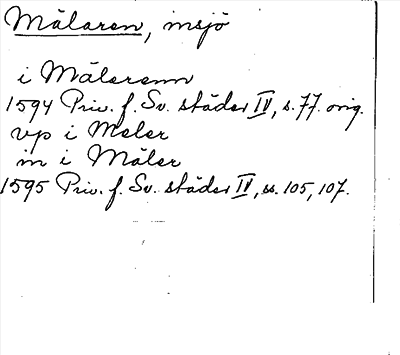 Mälaren, insjö
i Mälerenn
1594 Priv. f. Sv. städer IV, s. 77. orig.
vp i Meler
in i Mäler
1595 Priv. f. Sv. städer IV, ss. 105, 107.